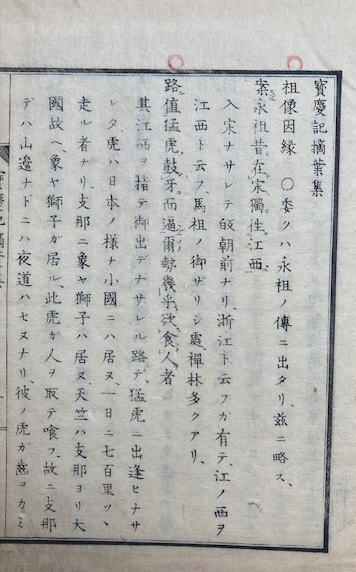 寶慶記摘葉集
祖像因縁 〇委クハ永祖ノ傳ニ出タリ、兹ニ略ス、
案永祖昔在宋獨徃江西、
入宋ナサレテ皈朝前ナリ、浙江ト云フガ有テ、江ノ西ヲ
江西ト云フ、馬祖ノ御ザリシ處、禪林多クアリ、
路値猛虎鼓牙而逼爾勢幾乎欲食人者
其江西ヲ指テ御出デナサレル路デ、猛虎ニ出逢ヒナサ
レタ虎ハ日本ノ様ナ小國ニハ居ヌ、一日ニ七百里ツヽ
走ル者ナリ、支那ニ象ヤ獅子ハ居ヌ、天竺ハ支那ヨリ大
國故ヘ、象ヤ獅子ガ居ル、此虎ガ人ヲ取テ喰フ、故ニ支那
デハ山邉ナドニハ夜道ハセヌナリ、彼ノ虎ガ齒ヲカミ